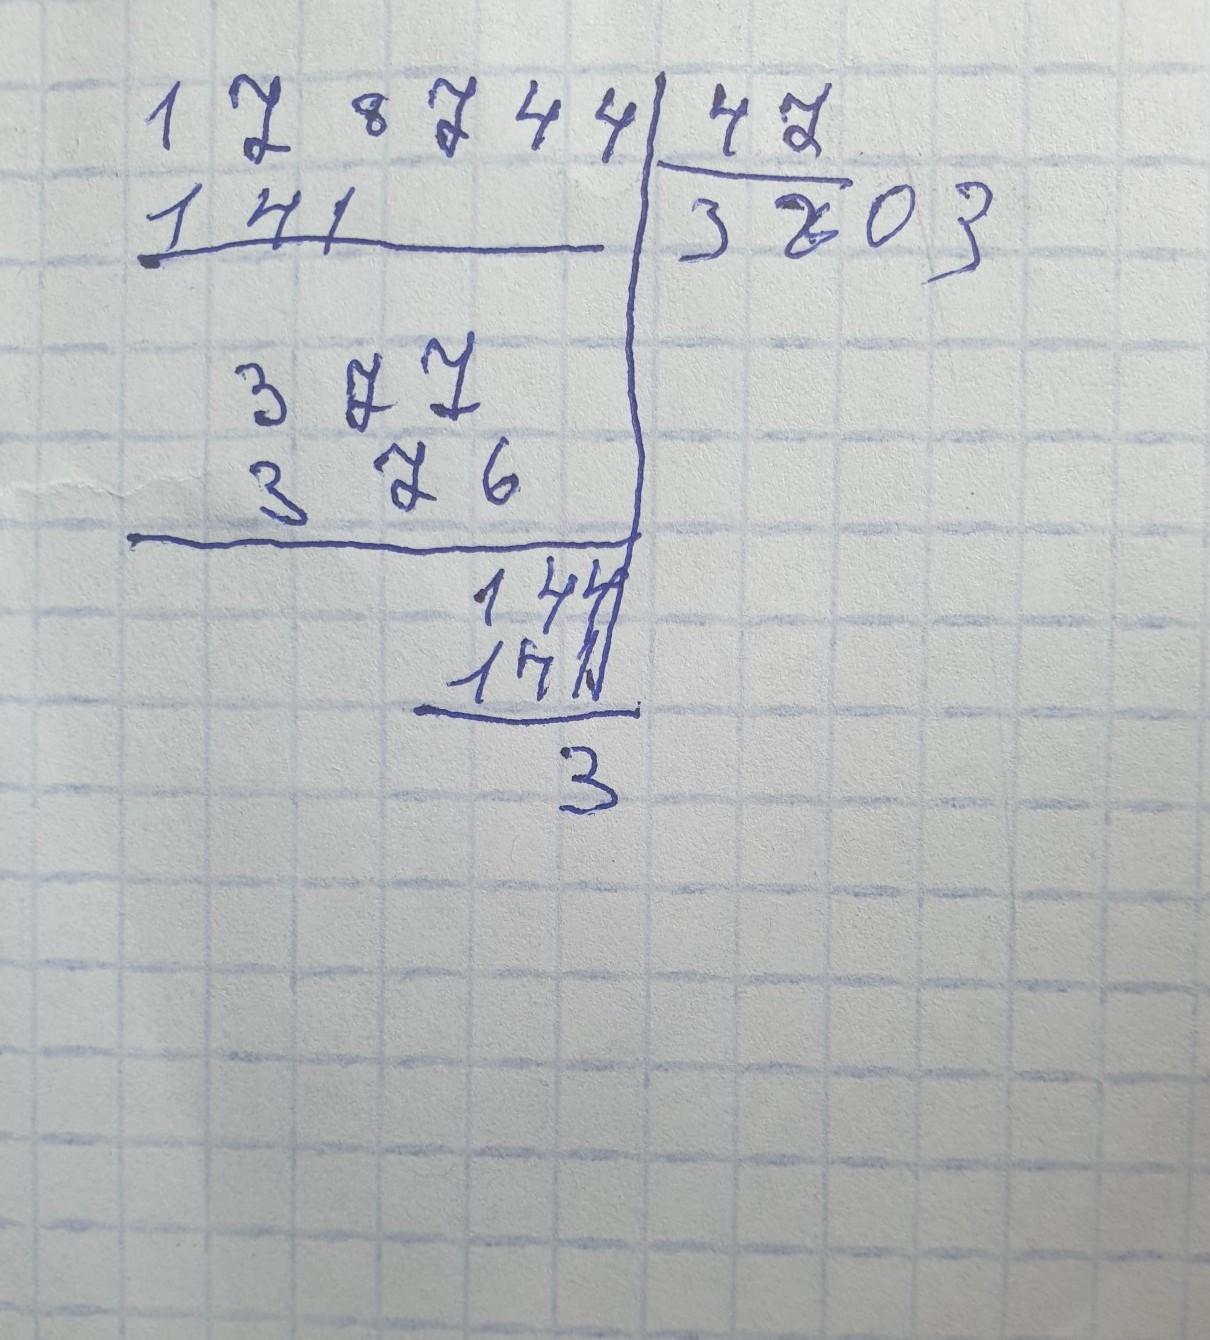 178744 47
141 3803
377
376
144
141
3